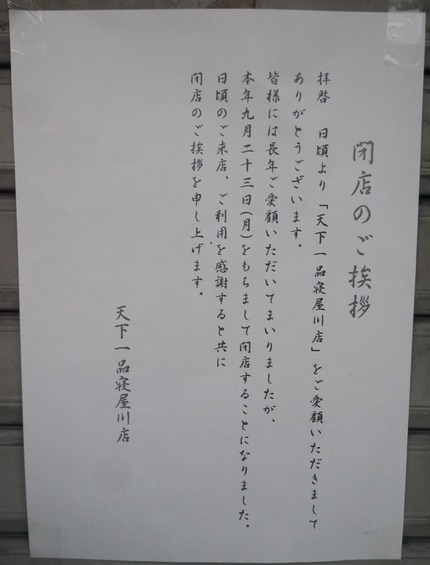 閉店のご挨拶
拝啓　日頃より「天下一品寝屋川店」をご愛顧いただきまして
ありがとうございます。
皆様には長年ご愛顧いただいてまいりましたが、
本年九月二十三日(月)をもちまして閉店することになりました。
日頃のご来店、ご利用を感謝すると共に
閉店のご挨拶を申し上げます。
天下一品寝屋川店